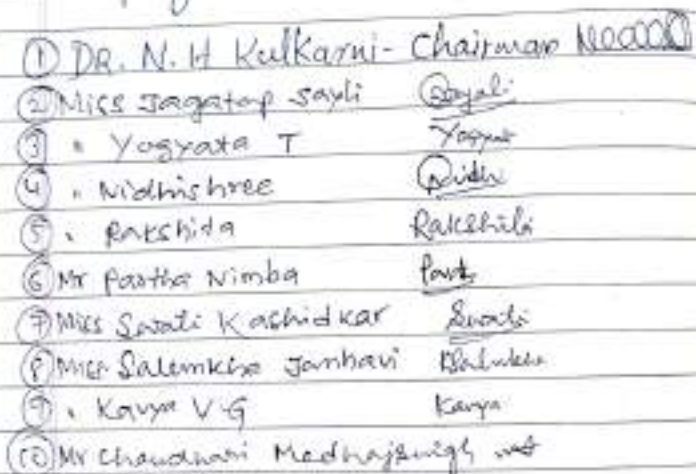 ① DR. N. H Kulkarni - Chairman
② Miss Jagatap Sayli Sayali
③ " Yogyata T Yogyat
④ " Nidhishree Nidhi
⑤ " Rakshida Rakshita
⑥ Mr Partha Nimba Parth
⑦ Miss Swati Kashidkar Swati
⑧ Miss Salunkhe Janhavi Salunkhe
⑨ " Kavya V.G Kavya
⑩ Mr Chaudhari